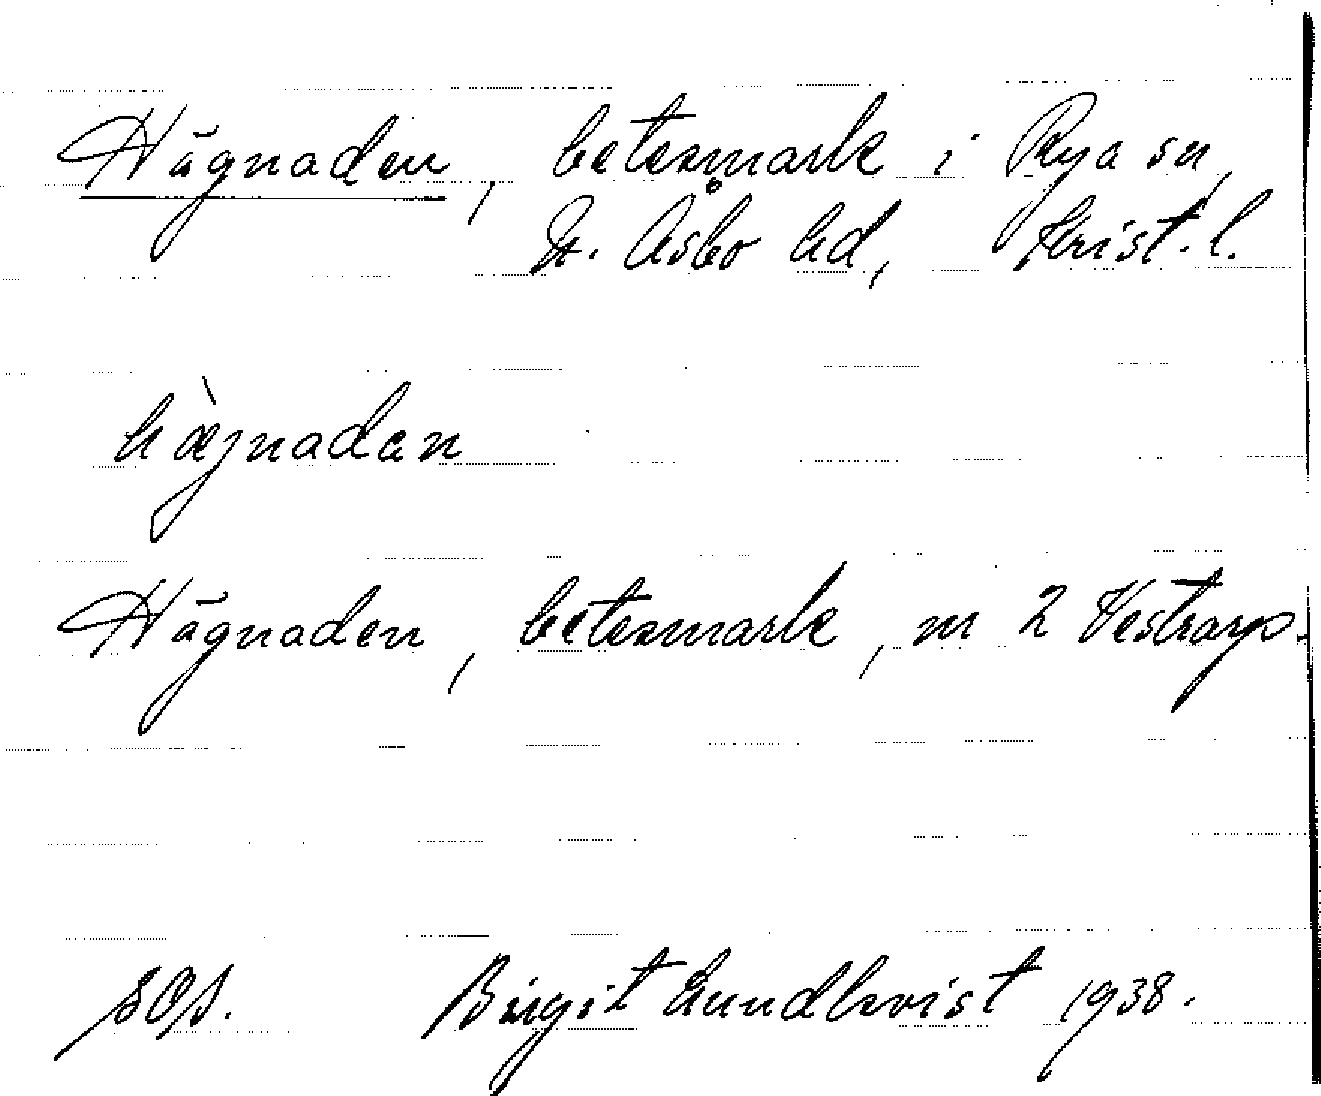 Hägnaden, betesmark i Rya sn,
N. Åsbo hd, Krist. l.
hæ̀jnadan
Hägnaden, betesmark, nr 2 Vestrarp.
SOS. Birgit Lundkvist 1938.